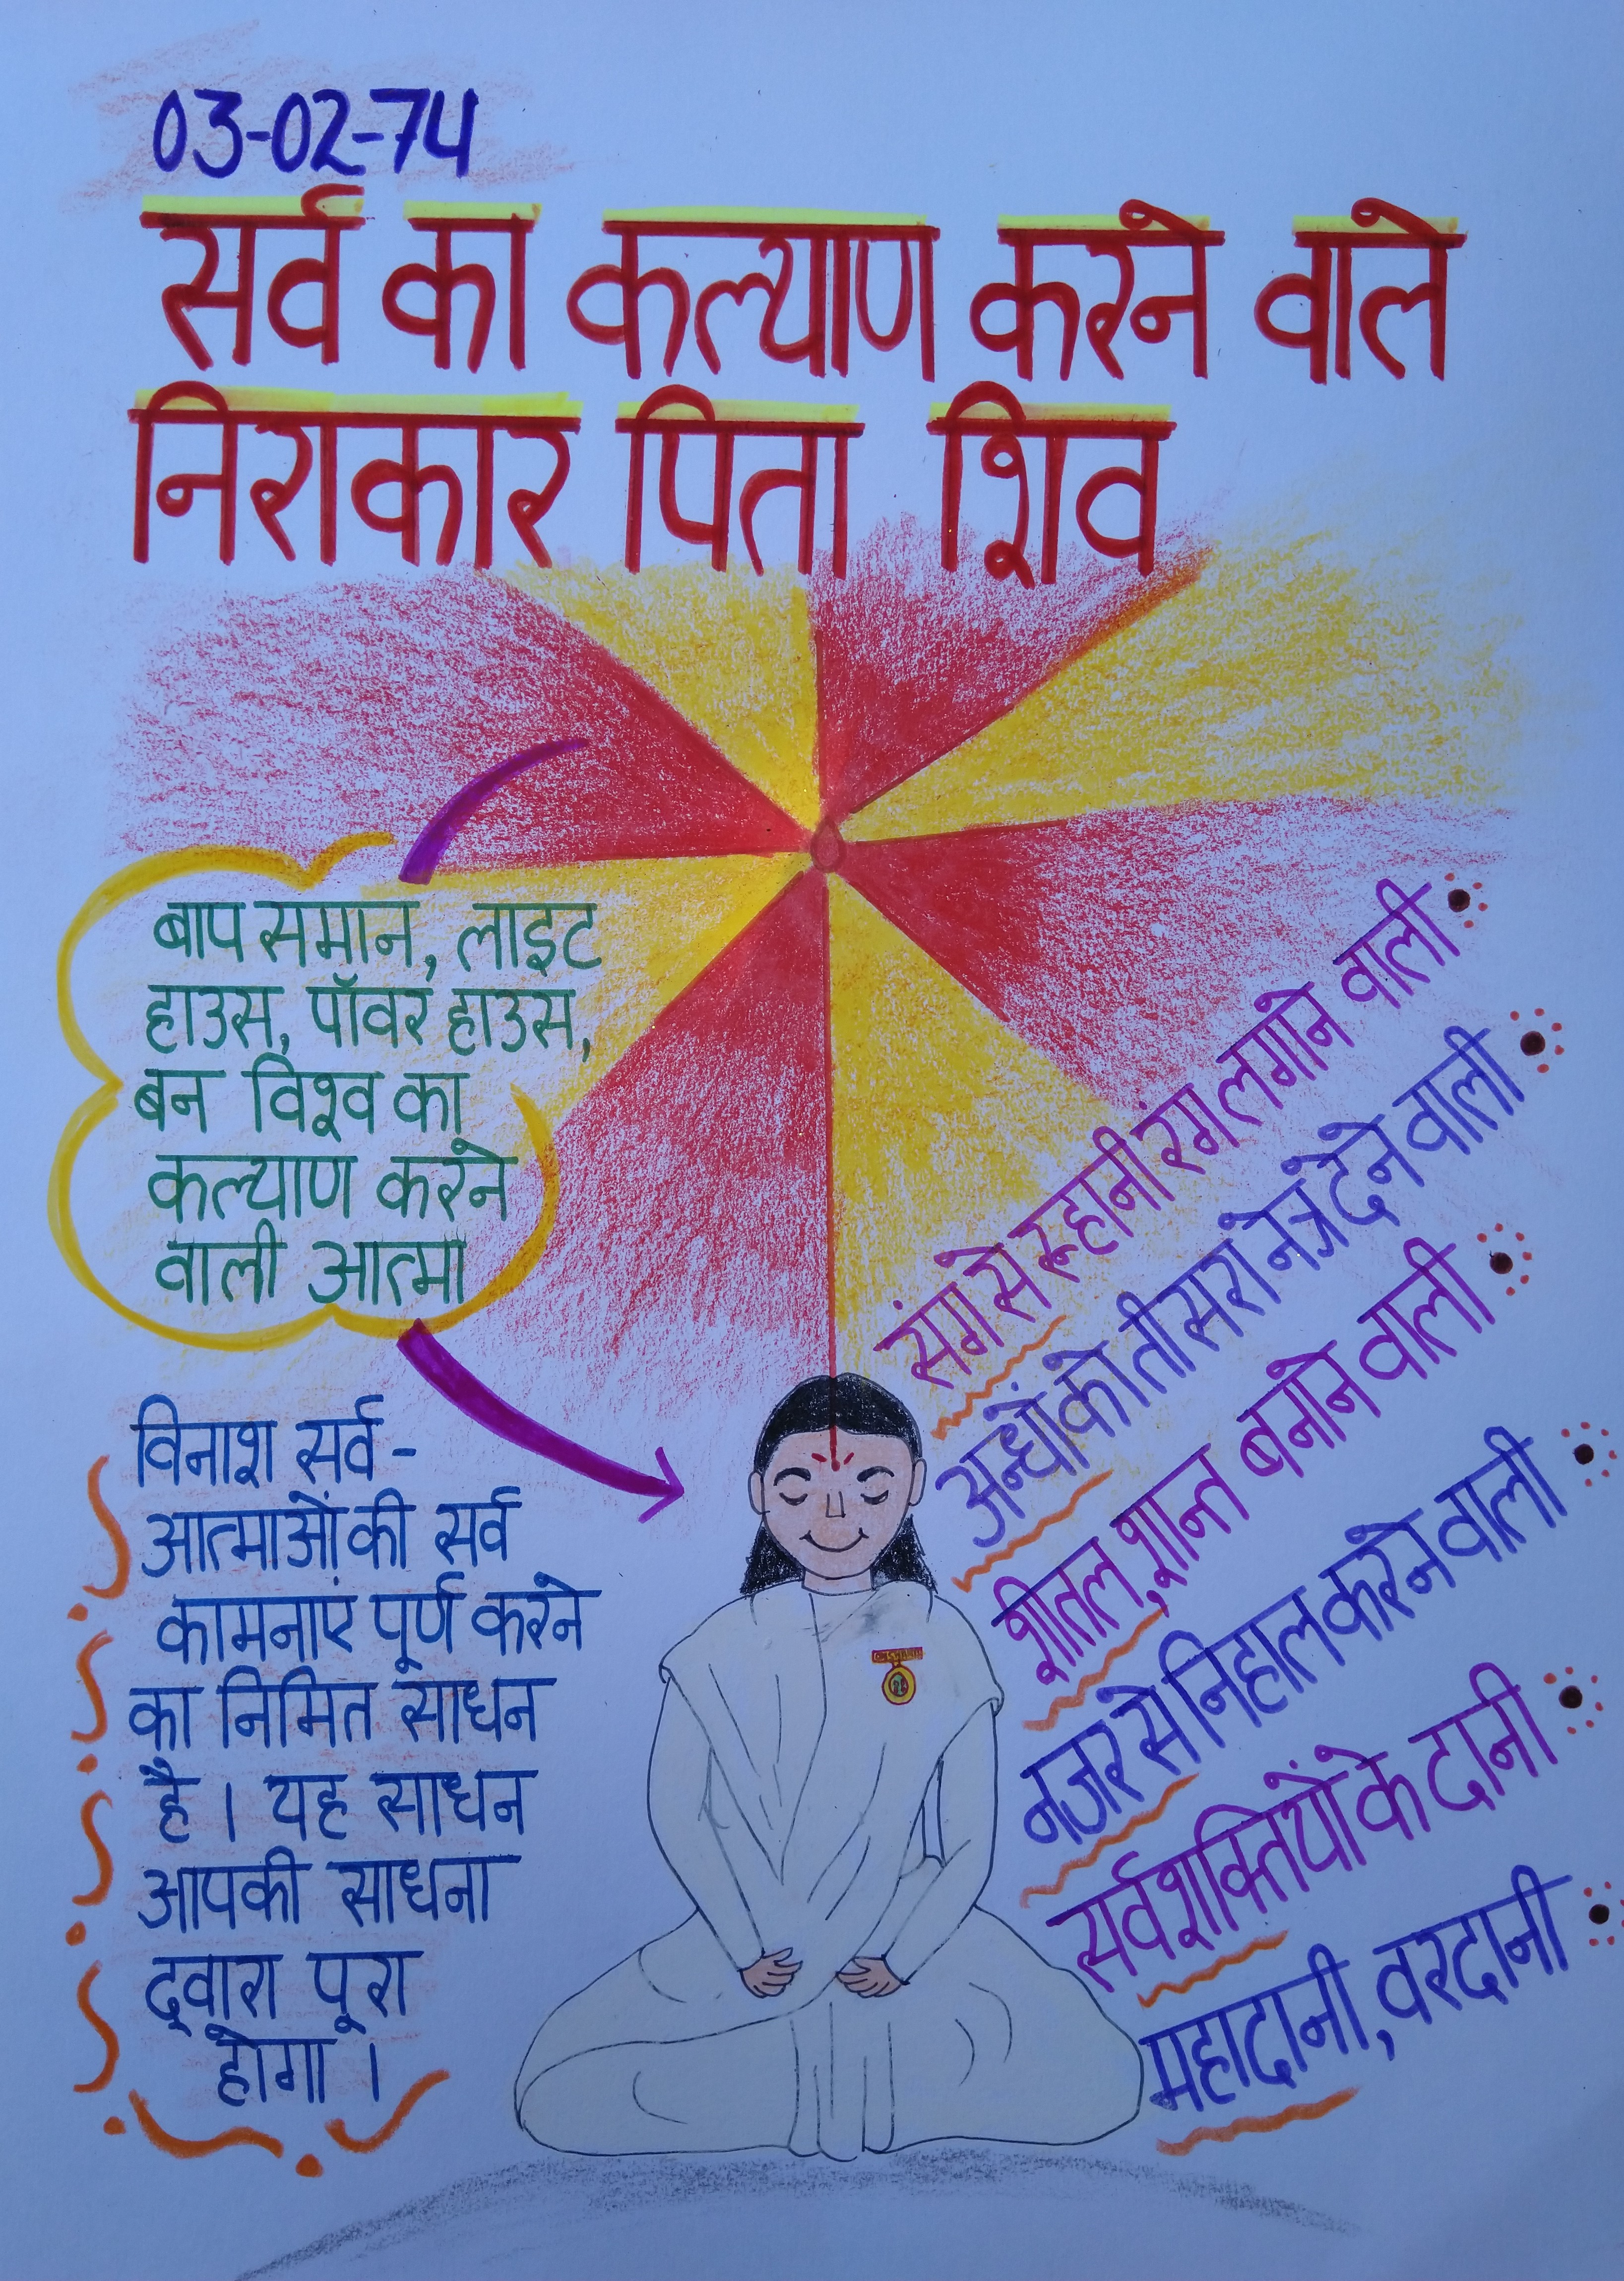 03-02-74
सर्व का कल्याण करने वाले
निराकार पिता शिव
बाप समान, लाइट
हाउस, पॉवर हाउस,
बन विश्व का
कल्याण करने
वाली आत्मा
विनाश सर्व-
आत्माओं की सर्व
कामनाएं पूर्ण करने
का निमित साधन
है । यह साधन
आपकी साधना
द्वारा पूरा
होगा ।
संग से रूहानी रंग लगाने वाली
अन्धों को तीसरा नेत्र देने वाली
शीतल, शान्त बनाने वाली
नजर से निहाल करने वाली
सर्व शक्तियों के दानी
महादानी, वरदानी